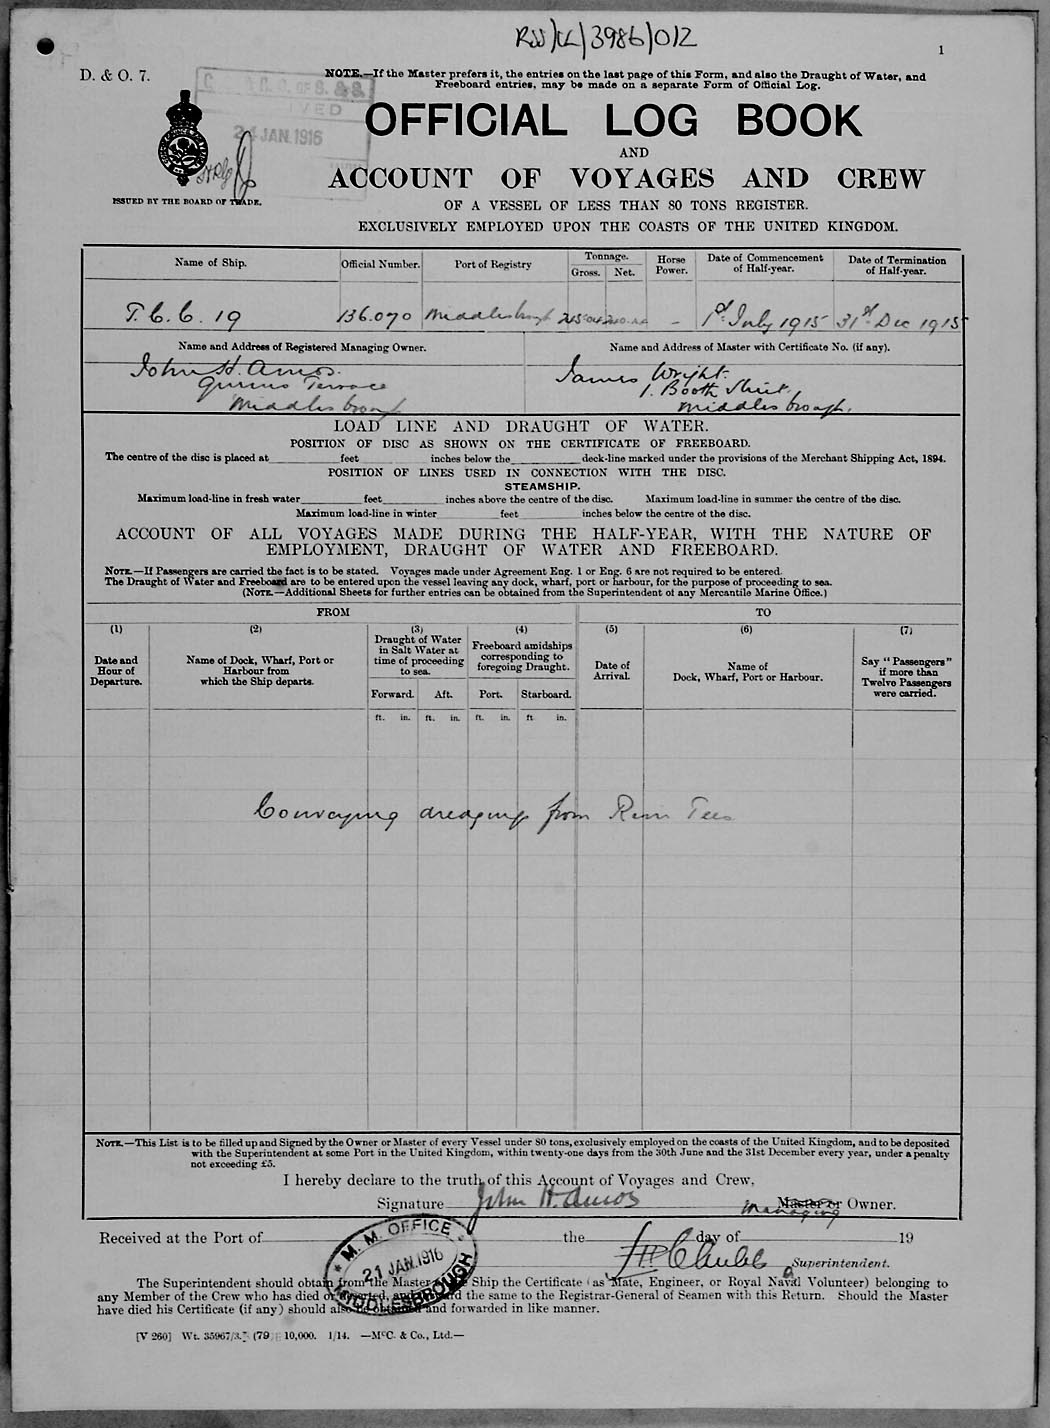 RSS/CL/3986/012
1
D. & O. 7.
NOTE.—If the Master prefers it, the entries on the last page of this Form, and also the Draught of Water, and
Freeboard entries, may be made on a separate Form of Official Log.
24 JAN. 1916
OFFICIAL LOG BOOK
AND
ACCOUNT OF VOYAGES AND CREW
ISSUED BY THE BOARD OF TRADE.
OF A VESSEL OF LESS THAN 80 TONS REGISTER.
EXCLUSIVELY EMPLOYED UPON THE COASTS OF THE UNITED KINGDOM.
Name of Ship. Official Number. Port of Registry Tonnage. Gross. Net. Horse Power. Date of Commencement of Half-year. Date of Termination of Half-year.
T.C.C. 19 136.070 Middlesbrough – 1st July 1915 31st Dec 1915
Name and Address of Registered Managing Owner. Name and Address of Master with Certificate No. (if any).
John H. Amos. James Wright.
Terrace 1. Booth Street.
Middlesbrough Middlesbrough.
LOAD LINE AND DRAUGHT OF WATER.
POSITION OF DISC AS SHOWN ON THE CERTIFICATE OF FREEBOARD.
The centre of the disc is placed at feet inches below the deck-line marked under the provisions of the Merchant Shipping Act, 1894.
POSITION OF LINES USED IN CONNECTION WITH THE DISC.
STEAMSHIP.
Maximum load-line in fresh water feet inches above the centre of the disc. Maximum load-line in summer the centre of the disc.
Maximum load-line in winter feet inches below the centre of the disc.
ACCOUNT OF ALL VOYAGES MADE DURING THE HALF-YEAR, WITH THE NATURE OF
EMPLOYMENT, DRAUGHT OF WATER AND FREEBOARD.
NOTE.—If Passengers are carried the fact is to be stated. Voyages made under Agreement Eng. 1 or Eng. 6 are not required to be entered.
The Draught of Water and Freeboard are to be entered upon the vessel leaving any dock, wharf, port or harbour, for the purpose of proceeding to sea.
(NOTE.—Additional Sheets for further entries can be obtained from the Superintendent of any Mercantile Marine Office.)
FROM TO
(1) (2) (3) (4) (5) (6) (7)
Date and Hour of Departure.
Name of Dock, Wharf, Port or Harbour from which the Ship departs.
Draught of Water in Salt Water at time of proceeding to sea.
Freeboard amidships corresponding to foregoing Draught.
Date of Arrival.
Name of Dock, Wharf, Port or Harbour.
Say "Passengers" if more than Twelve Passengers were carried.
Forward. Aft. Port. Starboard.
ft. in. ft. in. ft. in. ft in.
Conveying dredgings from River Tees
NOTE.—This List is to be filled up and Signed by the Owner or Master of every Vessel under 80 tons, exclusively employed on the coasts of the United Kingdom, and to be deposited
with the Superintendent at some Port in the United Kingdom, within twenty-one days from the 30th June and the 31st December every year, under a penalty
not exceeding £5.
I hereby declare to the truth of this Account of Voyages and Crew,
Signature John H. Amos Master or Owner.
Managing
Received at the Port of the day of 19
M. M. OFFICE
21 JAN. 1916
MIDDLESBROUGH
Superintendent.
The Superintendent should obtain from the Master Ship the Certificate (as Mate, Engineer, or Royal Naval Volunteer) belonging to
any Member of the Crew who has died or the same to the Registrar-General of Seamen with this Return. Should the Master
have died his Certificate (if any) should also be obtained and forwarded in like manner.
[V 260] Wt. 35967/3. (79 10,000. 1/14. —McC. & Co., Ltd.—